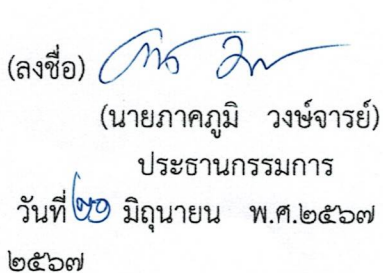 (ลงชื่อ)
(นายภาคภูมิ วงษ์จารย์)
ประธานกรรมการ
วันที่ ๒๑ มิถุนายน พ.ศ.๒๕๖๗
๒๕๖๗